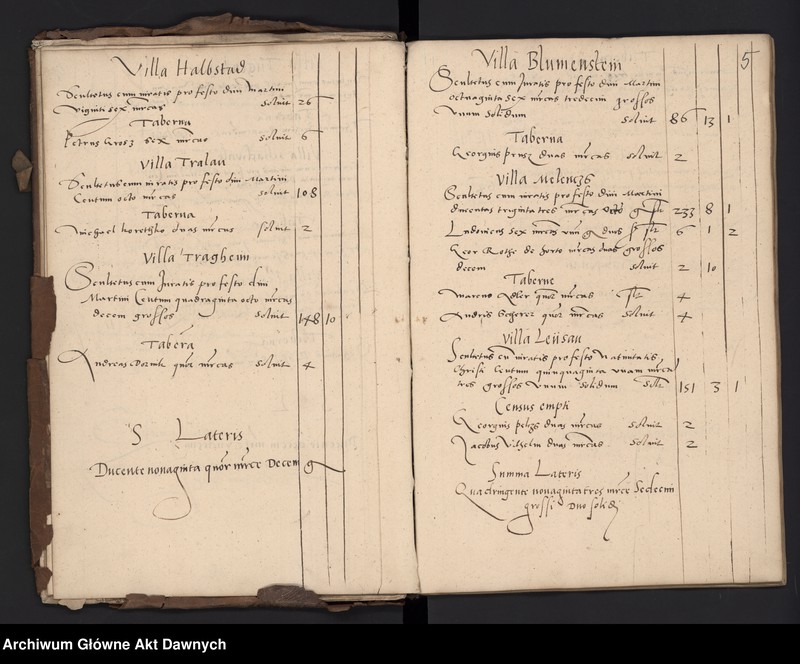 Villa Halbstad
Scultetus cum iuratis pro festo divi Martini
viginti sex mrcas soluit 26
Taberna
Petrus Grosz sex mrcas soluit 6
Villa Tralau
Scultetus cum iuratis pro festo divi Martini
Centum octo mrcas soluit 108
Taberna
Michael duas mrcas soluit 2
Villa Tragheim
Scultetus cum Juratis pro festo divi
Martini Centum quadraginta octo mrcas
decem grossos soluit 148 10
Tabera
Andreas quor mrcas soluit 4
S Lateris
Ducente nonaginta quor mrce Decem g
5
Villa Blumenstein
Scultetus cum Juratis pro festo divi Martini
octuaginta sex mrcas tredecim grossos
unum solidum soluit 86 13 1
Taberna
Georgius duas mrcas soluit 2
Villa Melenczs
Scultetus cum iuratis pro festo divi Martini
ducentas triginta tres mrcas octo g 233 8 1
Ludovicus sex mrcas g duos 6 1 2
Geor Rothe de horto mrcas duas grossos
decem soluit 2 10
Taberne
Adler quor mrcas 4
Andris Scherer quor mrcas soluit 4
Villa Leusau
Scultetus cu iuratis pro festo Nativitatis
Christi Centum quinquaginta unam mrca
tres grossos unum solidum 151 3 1
Census empti
Georgius duas mrcas soluit 2
Jacobus Vilhelm duas mrcas soluit 2
Summa Lateris
Quadringente nonaginta tres mrce Sedecim
grossi Duo solidi
Archiwum Główne Akt Dawnych